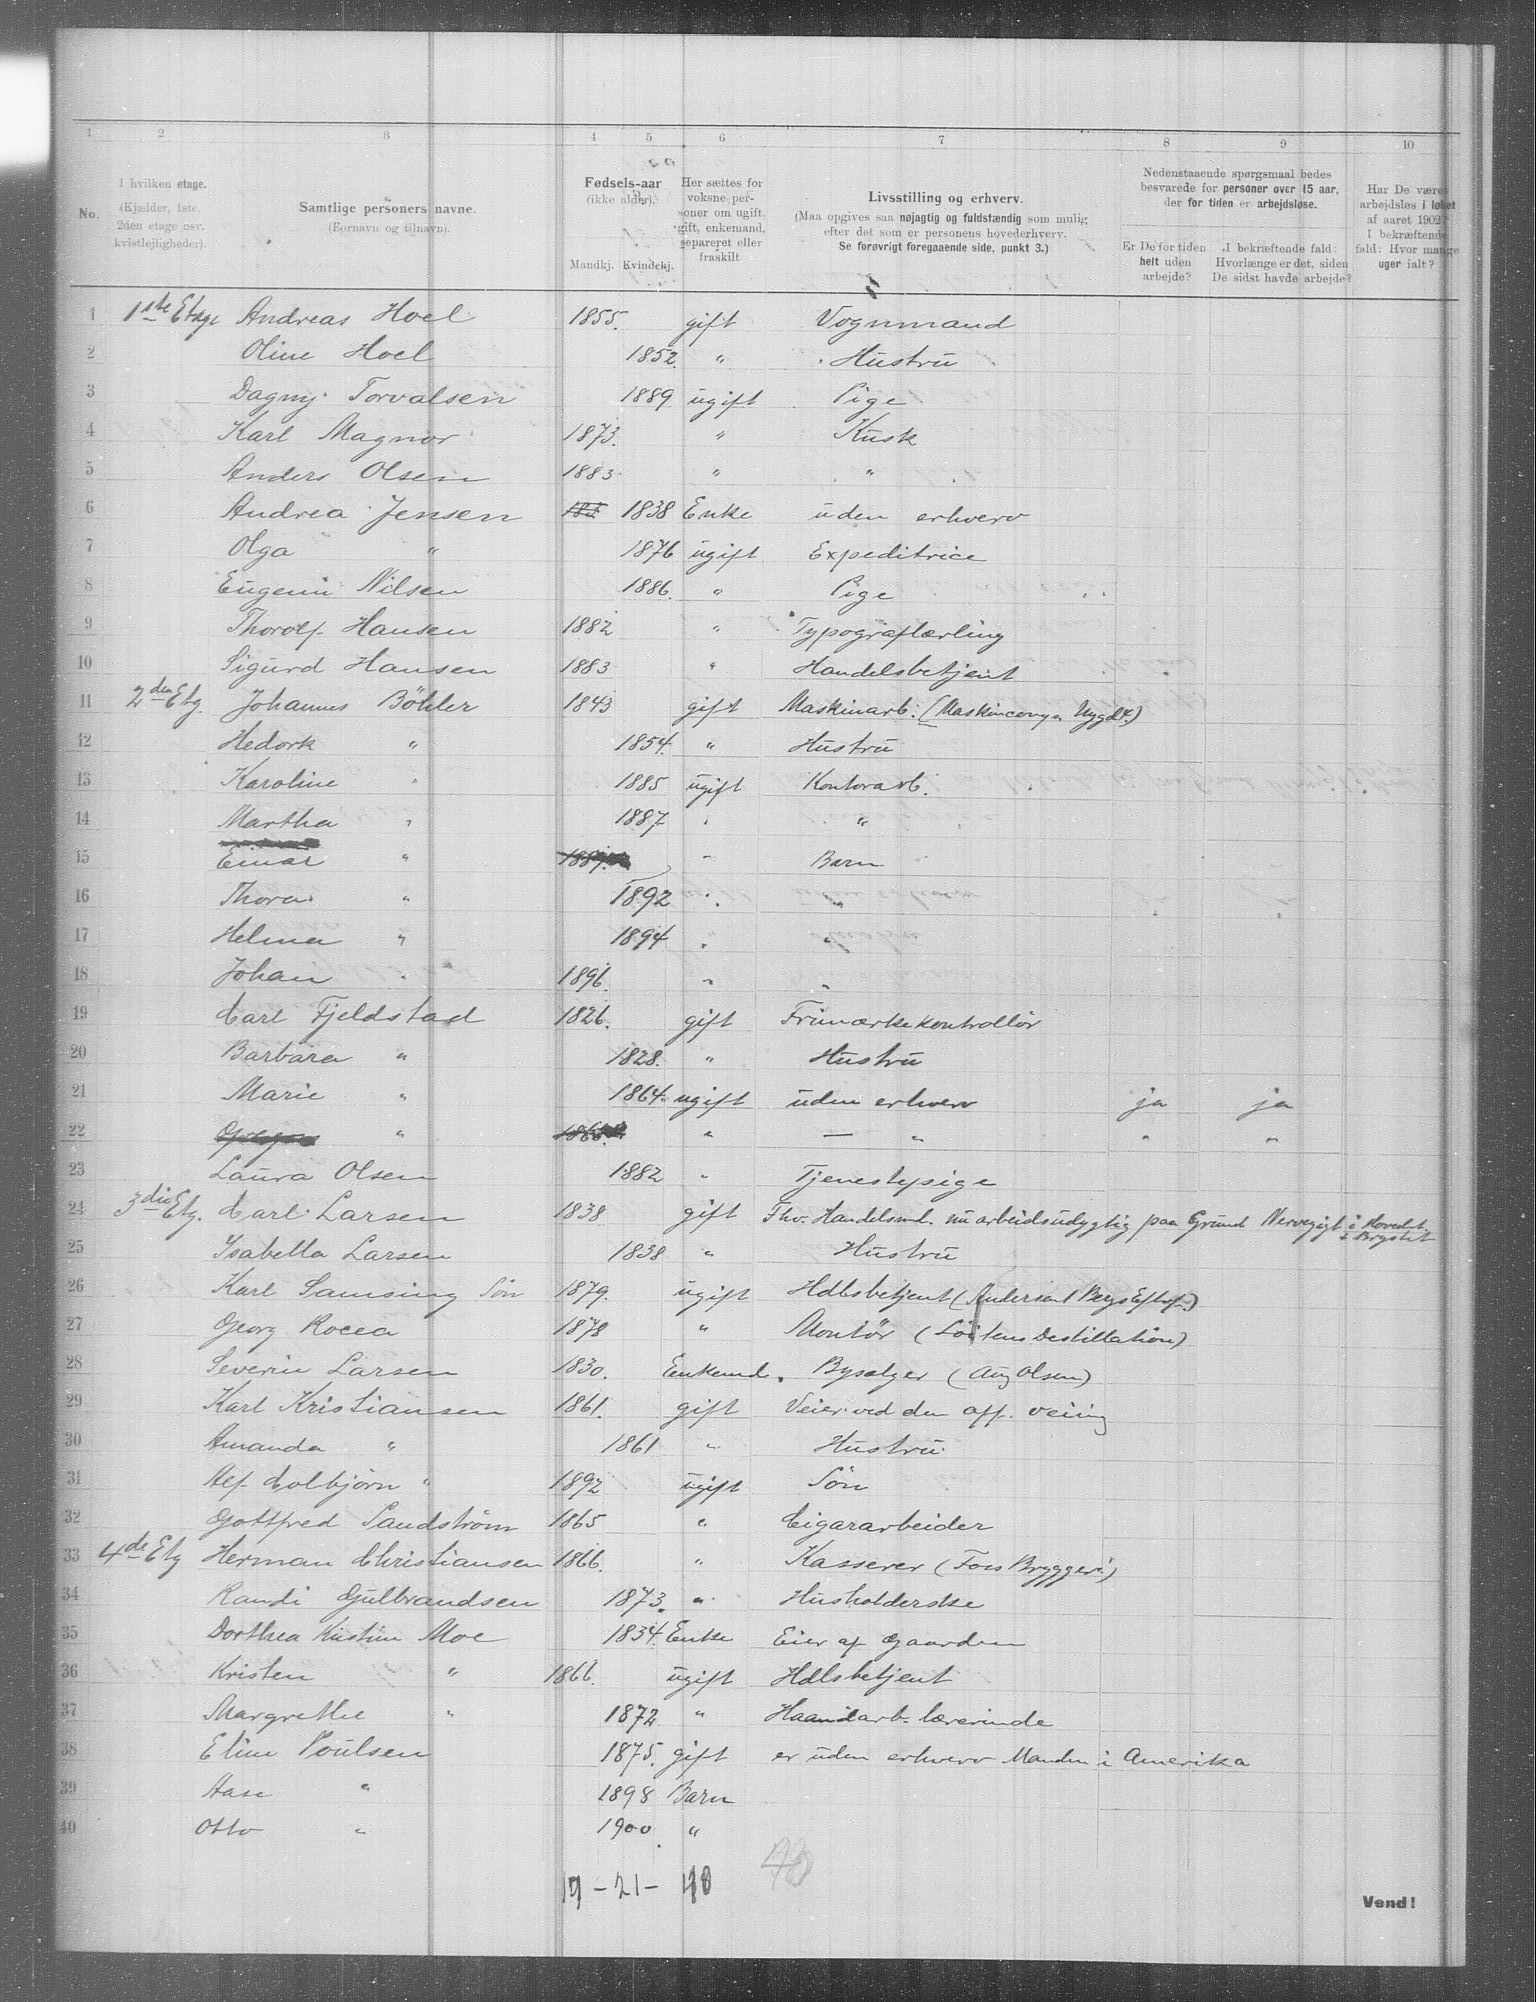 1 2 3 4 5 6 7 8 9 10
No.
I hvilken etage.
(Kjælder, 1ste,
2den etage osv.
kvistlejligheder).
Samtlige personers navne.
(Fornavn og tilnavn).
Fødsels-aar
(ikke alder).
Mandkj. Kvindekj.
Her sættes for
voksne per-
soner om ugift,
gift, enkemand,
separeret eller
fraskilt.
Livsstilling og erhverv.
(Maa opgives saa nøjagtig og fuldstændig som mulig
efter det som er personens hovederhverv.
Se forøvrigt foregaaende side, punkt 3.)
Nedenstaaende spørgsmaal bedes
besvarede for personer over 15 aar,
der for tiden er arbejdsløse.
Er De for tiden
helt uden
arbejde?
I bekræftende fald:
Hvorlænge er det, siden
De sidst havde arbejde?
Har De været
arbejdsløs i løbet
af aaret 1902?
I bekræftende
fald: Hvor mange
uger ialt?
1 1ste Etage Andreas Hoel 1855. gift Vognmand
2 Oline Hoel 1852. " Hustru
3 Dagny Torvalsen 1889 ugift Pige
4 Karl Magnor 1873. " Kusk
5 Anders Olsen 1883 " "
6 Andrea Jensen 1838 Enke uden erhverv
7 Olga " 1876 ugift Expeditrice
8 Eugeni Nilsen 1886. " Pige
9 Thorolf Hansen 1882 " Typograflærling
10 Sigurd Hansen 1883 " Handelsbetjent
11 2den Etg. Johannes Böhler 1843 gift Maskinarb.
12 " 1854. " Hustru
13 Karoline " 1885 ugift Kontorarb.
14 Martha " 1887 " "
15 Einar " " Barn
16 Thora " 1892 " "
17 Helma " 1894 " "
18 Johan " 1896. " "
19 Carl Fjeldstad 1826. gift Frimærkekontrollör
20 Barbara " 1828. " Hustru
21 Marie " 1864. ugift uden erhverv ja ja
22 " " — " " "
23 Laura Olsen 1882 " Tjenestepige
24 3die Etg. Carl Larsen 1838 gift Fhv. Handelsmd. nu arbeidsudygtig paa Grund Nervegigt i Hovedet
i Brystet
25 Isabella Larsen 1838 " Hustru
26 Karl Samsing Sön 1879. ugift Hdlsbetjent
27 Georg Rocca 1878 " Montör (Löitens Destillation)
28 Severin Larsen 1830. Enkemd. Bysælger (Aug Olsen)
29 Karl Kristiansen 1861. gift Veier ved den off. veiing
30 Amanda " 1861 " Hustru
31 Colbjörn " 1892 ugift Sön
32 Gottfred Sandström 1865 " Cigararbeider
33 4de Etg Herman Christiansen 1866. " Kasserer
34 Randi Gulbrandsen 1873. " Husholderske
35 Dorthea Kristine Moe 1834. Enke Eier af Gaarden
36 Kristen " 1866. ugift Hdlsbetjent
37 Margrethe " 1872 " Haandarb. lærerinde
38 Eline Poulsen 1875. gift er uden erhverv Manden i Amerika
39 Aase " 1898 Barn
40 Otto " 1900 "
19 – 21 – 40 40
Vend!